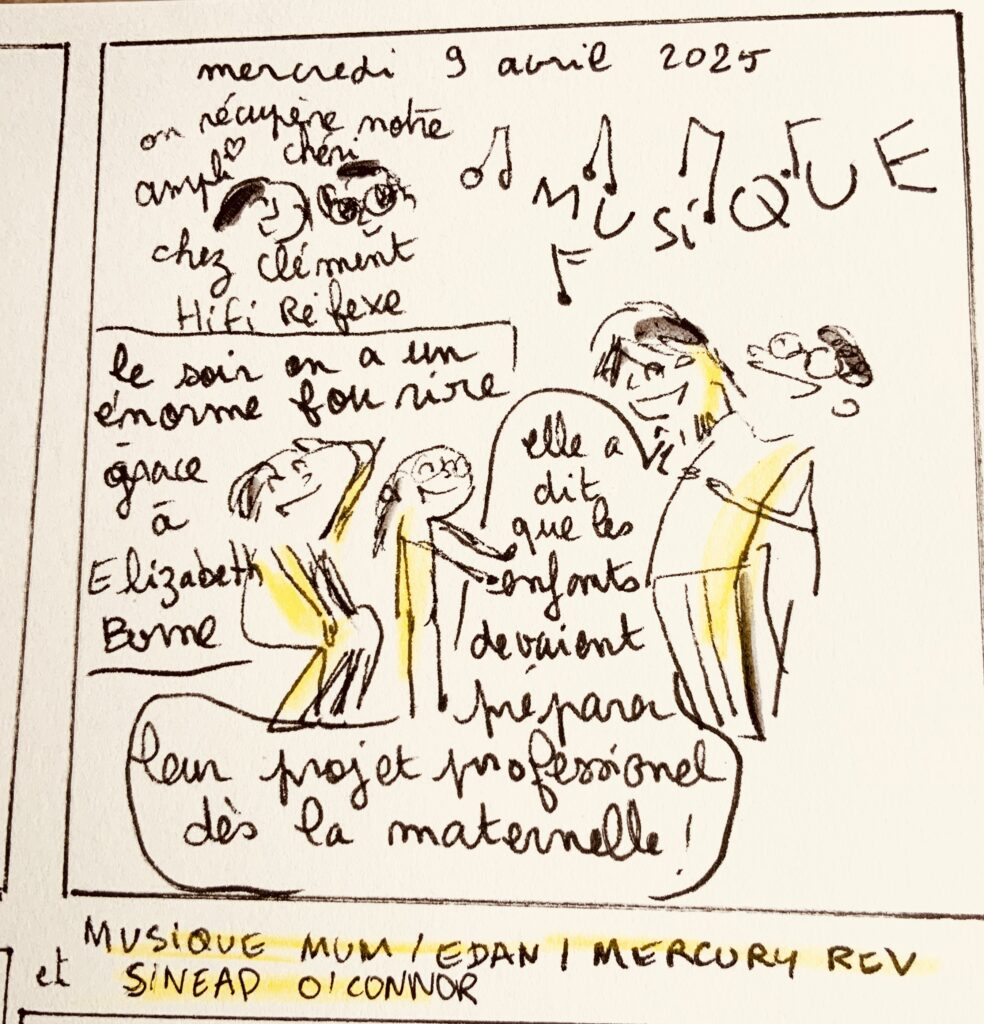 mercredi 9 avril 2025
on récupère notre
ampli chéri
chez Clément
HiFi Réfexe
MUSiQUE
le soir on a un
énorme fou rire
grace
à
Elizabeth
Borne
elle a
dit
que les
enfants
devaient
préparer
leur projet professionel
dès la maternelle !
MUSIQUE MUM / EDAN / MERCURY REV
et SiNEAD O'CONNOR